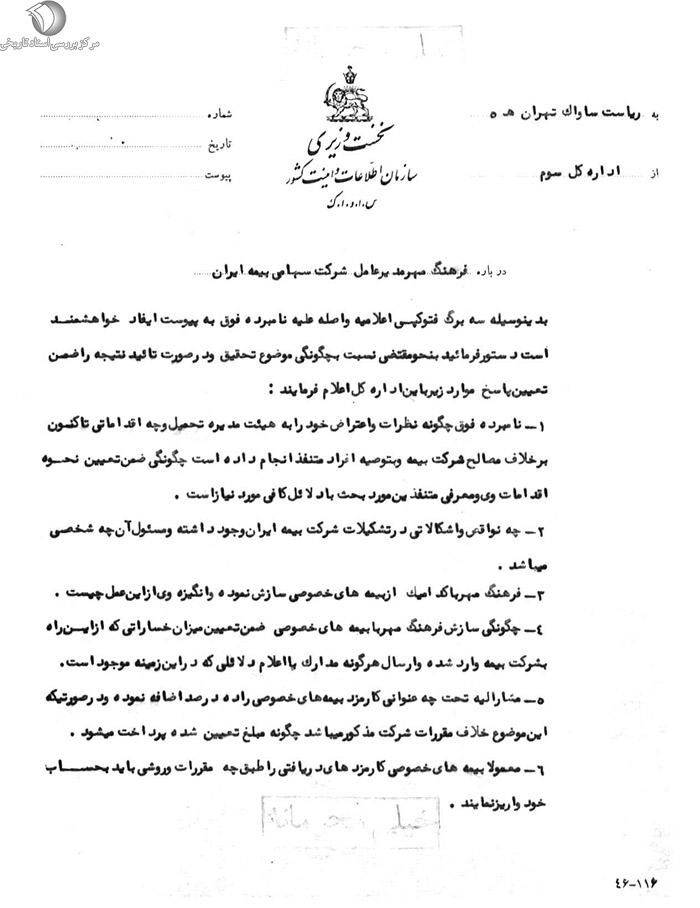 مرکز بررسی اسناد تاریخی
به ریاست ساواک تهران هـ ه
از اداره کل سوم
نخست وزیری
سازمان اطلاعات و امنیت کشور
س.ا.و.ا.ک
شماره
تاریخ
پیوست
درباره فرهنگ مهر مدیر عامل شرکت سهامی بیمه ایران
بدینوسیله سه برگ فتوکپی اعلامیه واصله علیه نامبرده فوق به پیوست ایفاد خواهشمند
است دستور فرمائید بنحو مقتضی نسبت بچگونگی موضوع تحقیق و در صورت تائید نتیجه را ضمن
تعیین پاسخ موارد زیر باین اداره کل اعلام فرمایند :
۱ـ نامبرده فوق چگونه نظرات و اعتراض خود را به هیئت مدیره تحمیل و چه اقداماتی تاکنون
برخلاف مصالح شرکت بیمه و بتوصیه افراد متنفذ انجام داده است چگونگی ضمن تعیین نحوه
اقدامات وی و معرفی متنفذین مورد بحث با دلائل کافی مورد نیاز است .
۲ـ چه نواقص و اشکالاتی در تشکیلات شرکت بیمه ایران وجود داشته و مسئول آن چه شخصی
میباشد .
۳ـ فرهنگ مهر با کدامیک از بیمه های خصوصی سازش نموده و انگیزه وی از این عمل چیست .
۴ـ چگونگی سازش فرهنگ مهر با بیمه های خصوصی ضمن تعیین میزان خساراتی که از این راه
بشرکت بیمه وارد شده و ارسال هرگونه مدارک یا اعلام دلائلی که در این زمینه موجود است.
۵ـ مشارالیه تحت چه عنوانی کارمزد بیمه‌های خصوصی را ده درصد اضافه نموده و در صورتیکه
این موضوع خلاف مقررات شرکت مذکور میباشد چگونه مبلغ تعیین شده پرداخت میشود .
۶ـ معمولا بیمه های خصوصی کارمزد های دریافتی را طبق چه مقررات و روشی باید بحساب
خود واریز نمایند .
۴۶-۱۱۶